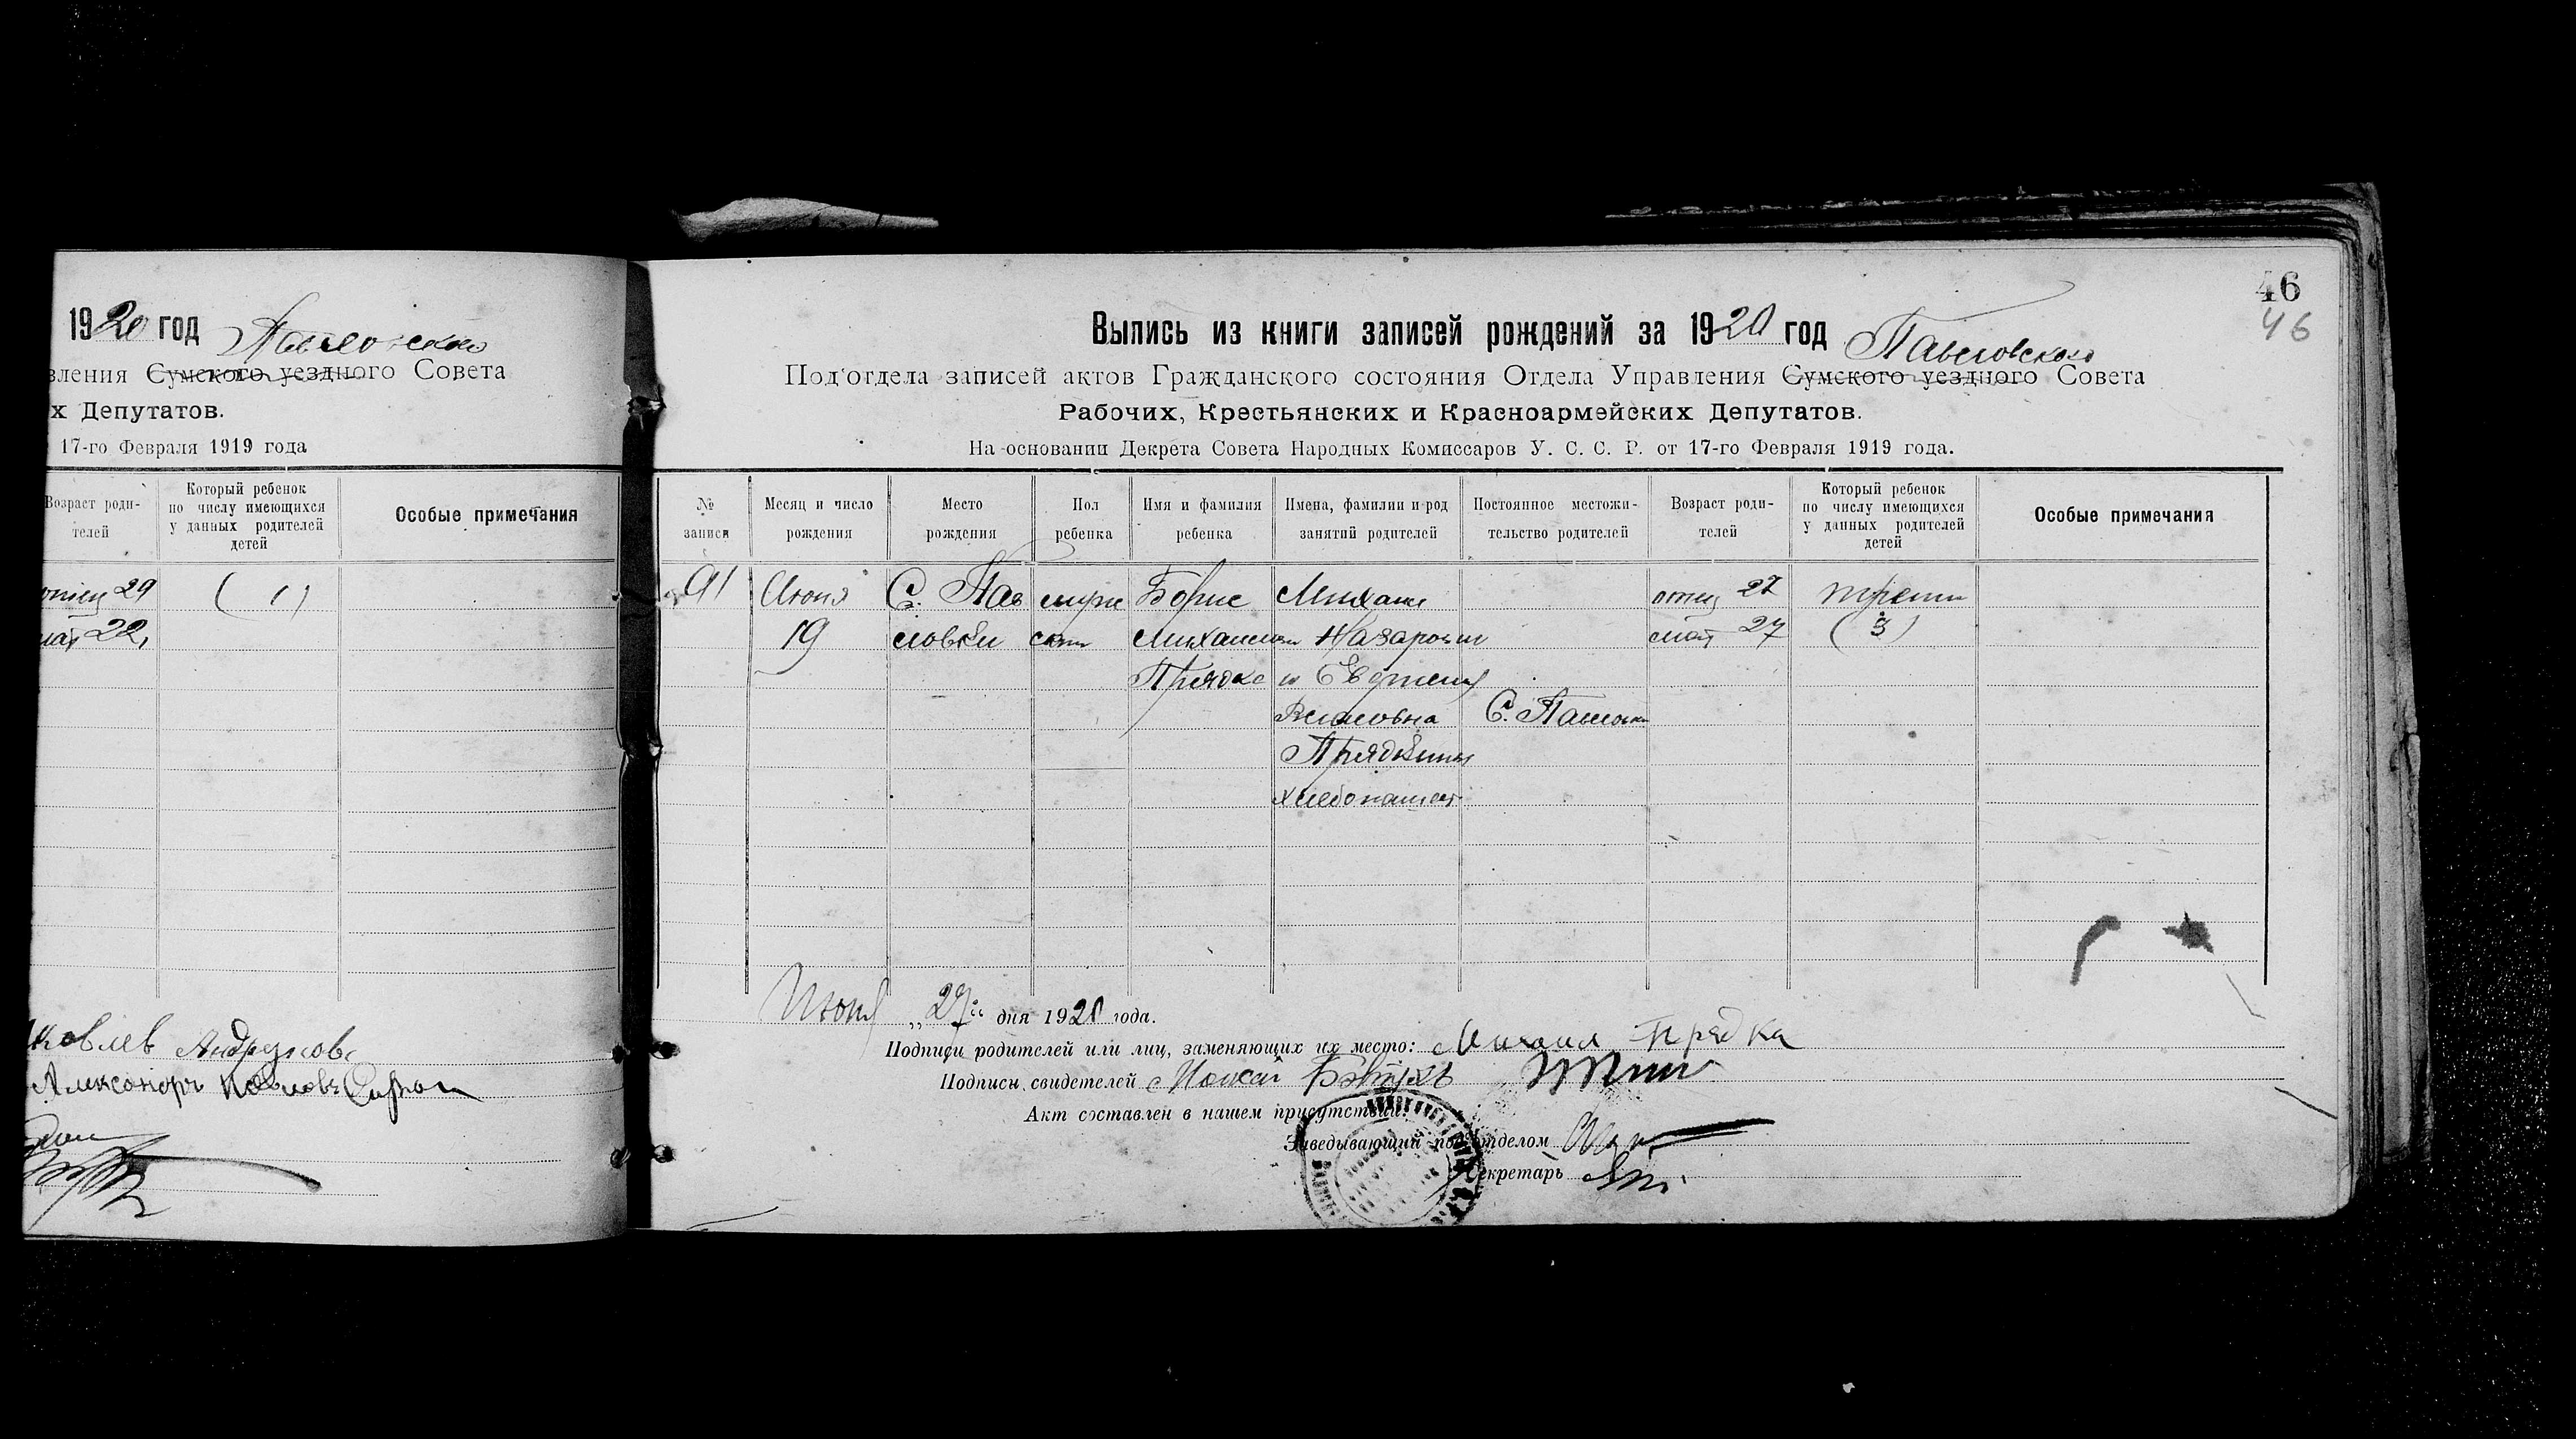 1920 год Павловского
вления Сумского уездного Совета
х Депутатов.
17-го Февраля 1919 года
Возраст роди-
телей
Который ребенок
по числу имеющихся
у данных родителей
детей
Особые примечания
отец 29
(1)
мат 22
ковлев
Александръ
46
46
Выпись из книги записей рождений за 1920 год Павловского
Под'отдела записей актов Гражданского состояния Отдела Управления Сумского уездного Совета
Рабочих, Крестьянских и Красноармейских Депутатов.
На основании Декрета Совета Народных Комиссаров У. С. С. Р. от 17-го Февраля 1919 года.
№
записи
Месяц и число
рождения
Место
рождения
Пол
ребенка
Имя и фамилия
ребенка
Имена, фамилии и род
занятий родителей
Постоянное местожи-
тельство родителей
Возраст роди-
телей
Который ребенок
по числу имеющихся
у данных родителей
детей
Особые примечания
91 Июня С. Пав муж Борис Михаил отец 27
19 ловки ской Назарович мат 27 (3)
Прядка и
С. Павловки
Прядкины
хлебопашест
Июня „27“ дня 1920 года.
Подписи родителей или лиц, заменяющих их место: Михаил Прядка
Подписи свидетелей
Акт составлен в нашем присутствии:
Заведывающий под'отделом
Секретарь